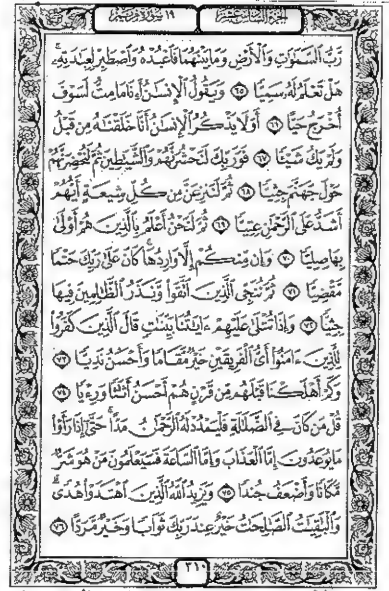 الجزء السادس عشر ١٩ سورة مريم
رَّبُّ السَّمَٰوَٰتِ وَالْأَرْضِ وَمَا بَيْنَهُمَا فَاعْبُدْهُ وَاصْطَبِرْ لِعِبَٰدَتِهِۦ ۚ
هَلْ تَعْلَمُ لَهُۥ سَمِيًّا ۝٦٥ وَيَقُولُ الْإِنسَٰنُ أَءِذَا مَا مِتُّ لَسَوْفَ
أُخْرَجُ حَيًّا ۝٦٦ أَوَلَا يَذْكُرُ الْإِنسَٰنُ أَنَّا خَلَقْنَٰهُ مِن قَبْلُ
وَلَمْ يَكُ شَيْـًٔا ۝٦٧ فَوَرَبِّكَ لَنَحْشُرَنَّهُمْ وَالشَّيَٰطِينَ ثُمَّ لَنُحْضِرَنَّهُمْ
حَوْلَ جَهَنَّمَ جِثِيًّا ۝٦٨ ثُمَّ لَنَنزِعَنَّ مِن كُلِّ شِيعَةٍ أَيُّهُمْ
أَشَدُّ عَلَى الرَّحْمَٰنِ عِتِيًّا ۝٦٩ ثُمَّ لَنَحْنُ أَعْلَمُ بِالَّذِينَ هُمْ أَوْلَىٰ
بِهَا صِلِيًّا ۝٧٠ وَإِن مِّنكُمْ إِلَّا وَارِدُهَا ۚ كَانَ عَلَىٰ رَبِّكَ حَتْمًا
مَّقْضِيًّا ۝٧١ ثُمَّ نُنَجِّى الَّذِينَ اتَّقَوا۟ وَّنَذَرُ الظَّٰلِمِينَ فِيهَا
جِثِيًّا ۝٧٢ وَإِذَا تُتْلَىٰ عَلَيْهِمْ ءَايَٰتُنَا بَيِّنَٰتٍ قَالَ الَّذِينَ كَفَرُوا۟
لِلَّذِينَ ءَامَنُوٓا۟ أَىُّ الْفَرِيقَيْنِ خَيْرٌ مَّقَامًا وَأَحْسَنُ نَدِيًّا ۝٧٣
وَكَمْ أَهْلَكْنَا قَبْلَهُم مِّن قَرْنٍ هُمْ أَحْسَنُ أَثَٰثًا وَرِءْيًا ۝٧٤
قُلْ مَن كَانَ فِى الضَّلَٰلَةِ فَلْيَمْدُدْ لَهُ الرَّحْمَٰنُ مَدًّا ۚ حَتَّىٰٓ إِذَا رَأَوْا۟
مَا يُوعَدُونَ إِمَّا الْعَذَابَ وَإِمَّا السَّاعَةَ فَسَيَعْلَمُونَ مَنْ هُوَ شَرٌّ
مَّكَانًا وَأَضْعَفُ جُندًا ۝٧٥ وَيَزِيدُ اللَّهُ الَّذِينَ اهْتَدَوْا۟ هُدًى ۗ
وَالْبَٰقِيَٰتُ الصَّٰلِحَٰتُ خَيْرٌ عِندَ رَبِّكَ ثَوَابًا وَخَيْرٌ مَّرَدًّا ۝٧٦
٣١٠